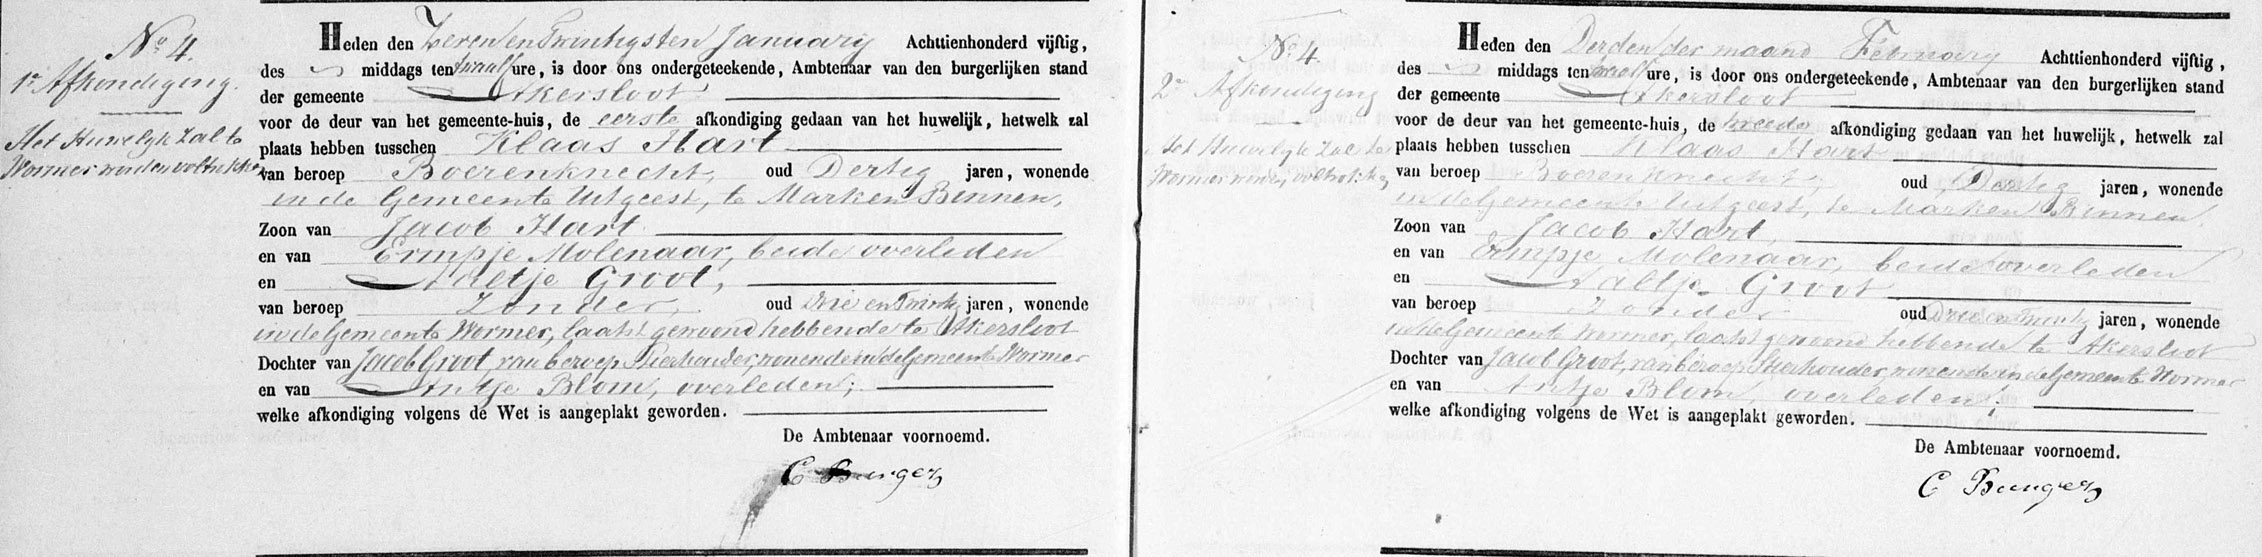 No 4.
1e Afkondiging.
Het Huwelyk zal te
Wormer worden voltrokken
Heden den Zevenentwintigsten January Achttienhonderd vijftig,
des middags ten twaalf ure, is door ons ondergeteekende, Ambtenaar van den burgerlijken stand
der gemeente Akersloot
voor de deur van het gemeente-huis, de eerste afkondiging gedaan van het huwelijk, hetwelk zal
plaats hebben tusschen Klaas Hart
van beroep Boerenknecht, oud Dertig jaren, wonende
in de Gemeente Uitgeest, te Marken Binnen,
Zoon van Jacob Hart
en van Ermpje Molenaar, beide overleden
en Aaltje Groot,
van beroep Zonder, oud Drie en Twintig jaren, wonende
in de Gemeente Wormer, laatst gewoond hebbende te Akersloot
Dochter van Jacob Groot, van beroep Veehouder, wonende in de Gemeente Wormer
en van Antje Blom, overleden;
welke afkondiging volgens de Wet is aangeplakt geworden.
De Ambtenaar voornoemd.
C Burger
No 4.
2e Afkondiging
Het Huwelyk zal te
Wormer worden voltrokken
Heden den Derden der maand February Achttienhonderd vijftig,
des middags ten twaalf ure, is door ons ondergeteekende, Ambtenaar van den burgerlijken stand
der gemeente Akersloot
voor de deur van het gemeente-huis, de tweede afkondiging gedaan van het huwelijk, hetwelk zal
plaats hebben tusschen Klaas Hart
van beroep Boerenknecht, oud Dertig jaren, wonende
in de Gemeente Uitgeest, te Marken Binnen,
Zoon van Jacob Hart,
en van Ermpje Molenaar, beide overleden
en Aaltje Groot
van beroep Zonder oud Drie en Twintig jaren, wonende
in de Gemeente Wormer, laatst gewoond hebbende te Akersloot
Dochter van Jacob Groot, van beroep Veehouder, wonende in de Gemeente Wormer
en van Antje Blom, overleden;
welke afkondiging volgens de Wet is aangeplakt geworden.
De Ambtenaar voornoemd.
C Burger